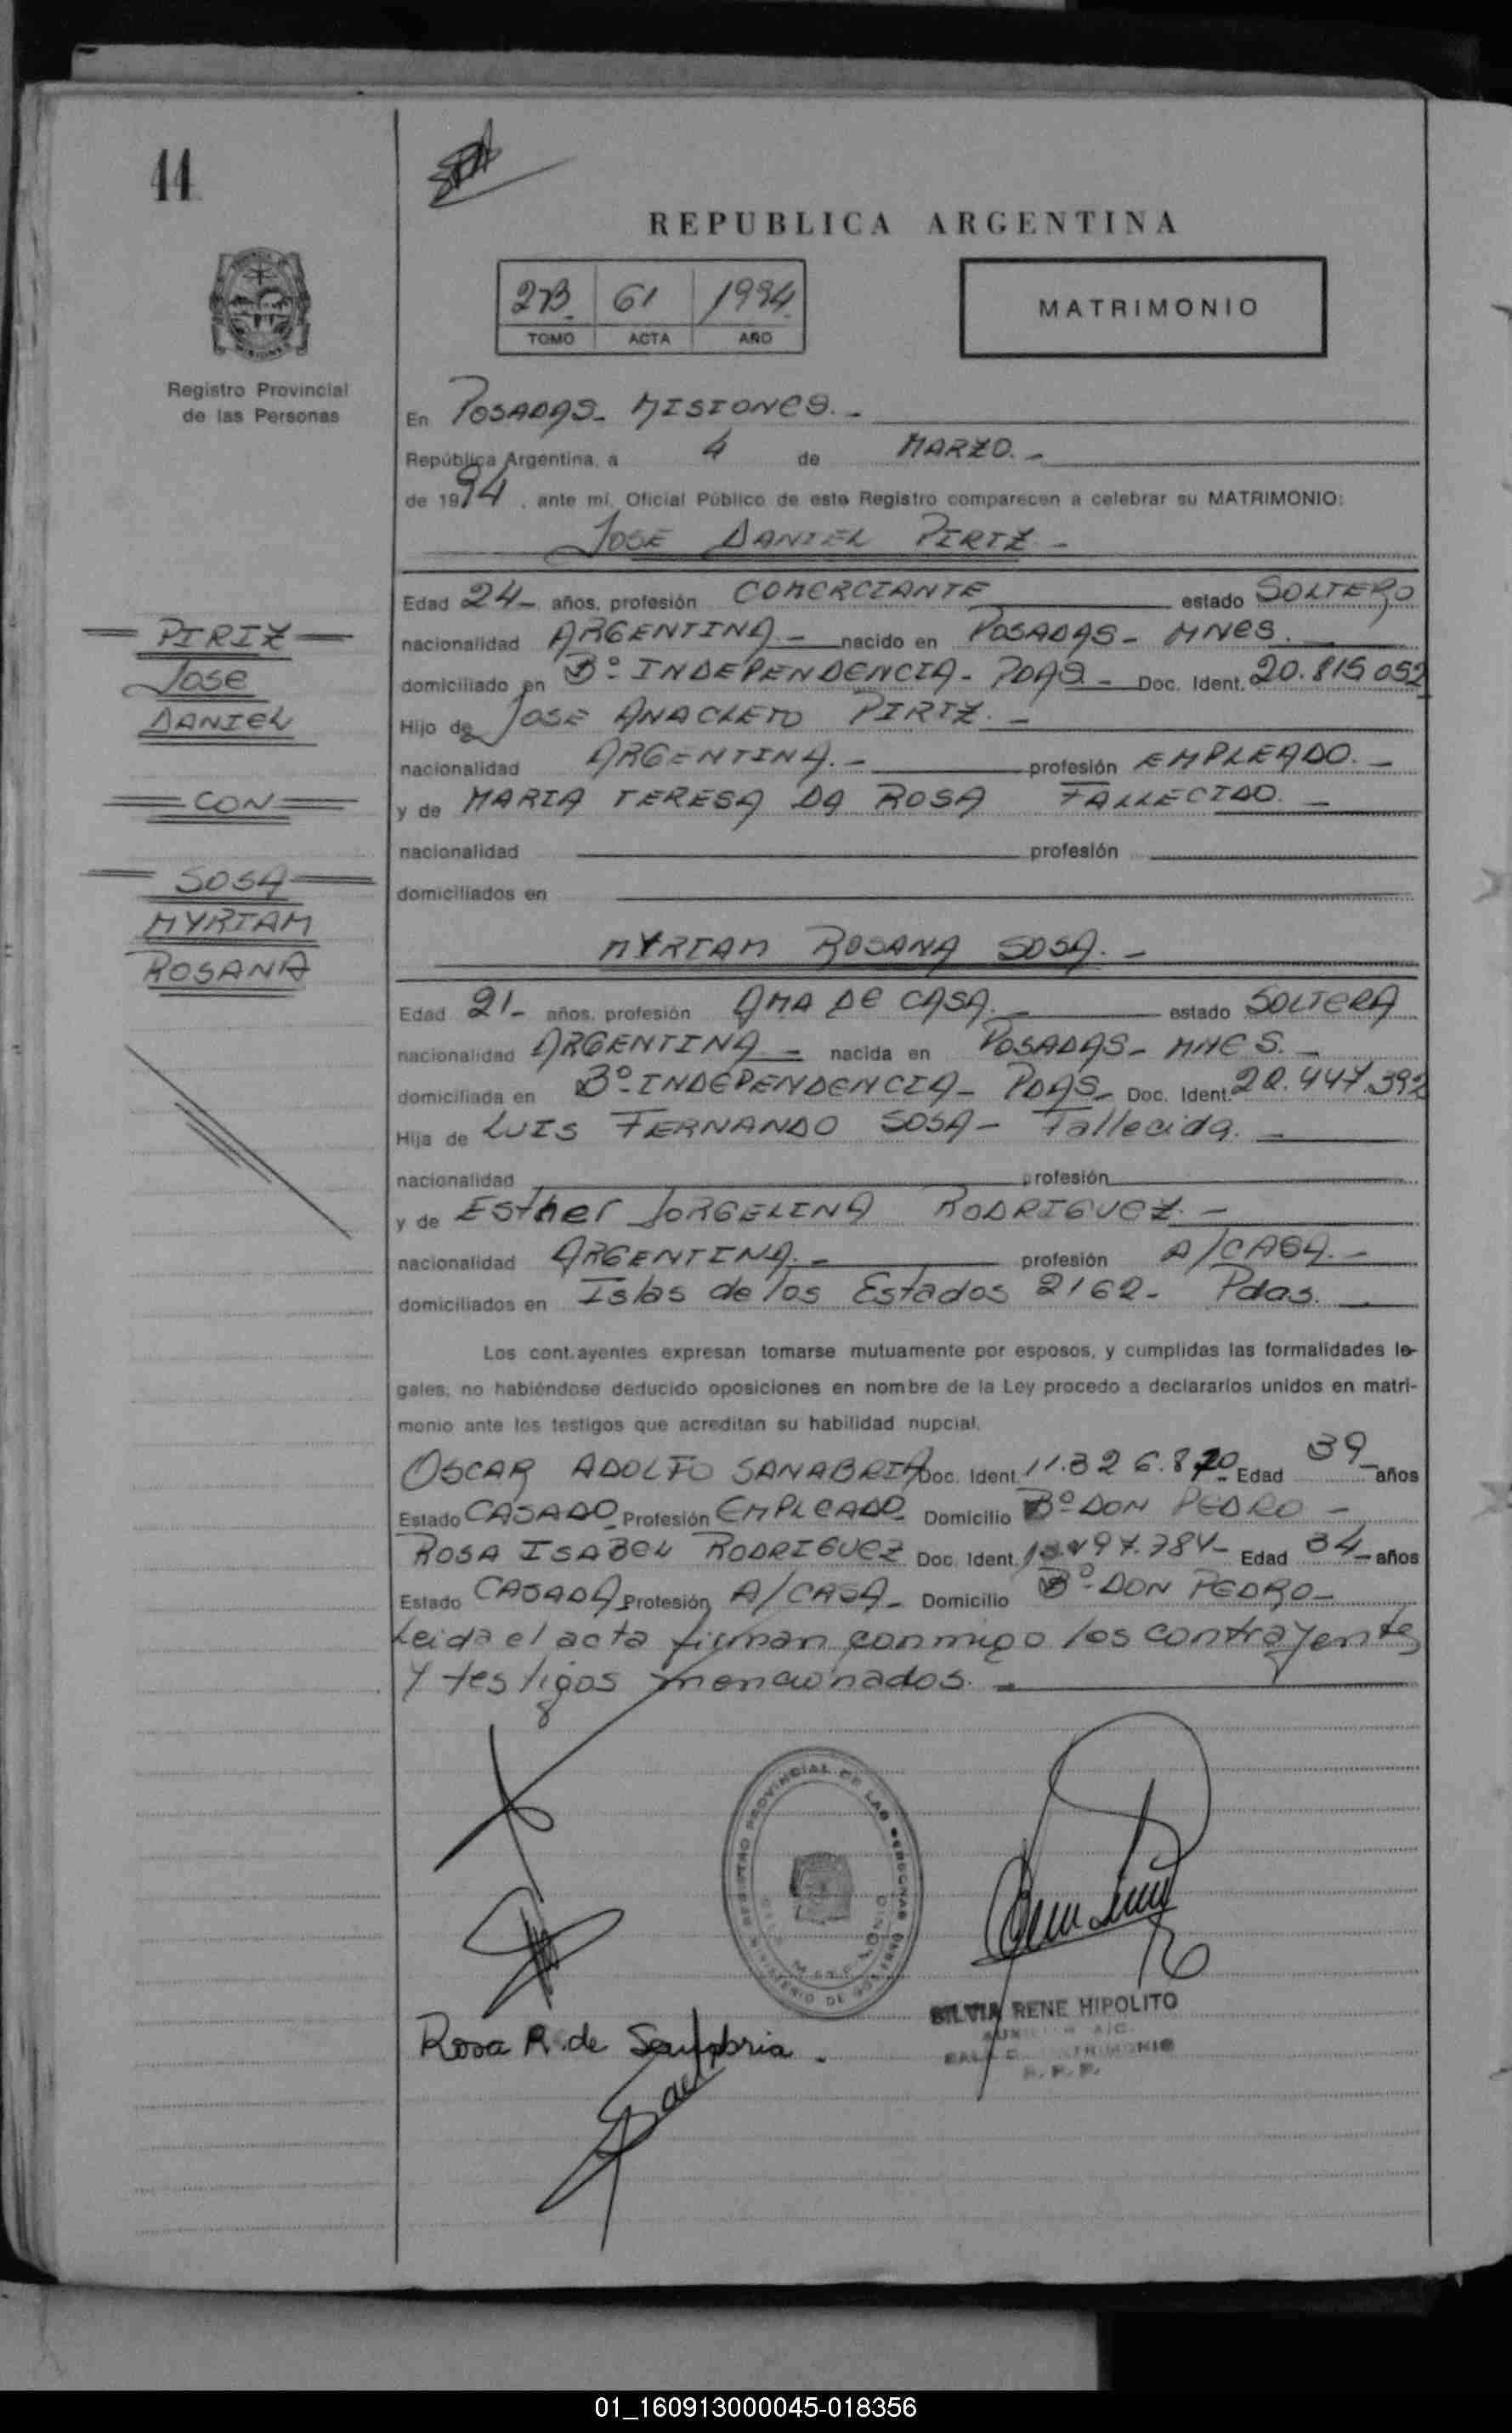 44
REPUBLICA ARGENTINA
2B 61 1994
TOMO ACTA AÑO
MATRIMONIO
Registro Provincial
de las Personas
En POSADAS- MISIONES.-
República Argentina, a 4 de MARZO.-
de 1994, ante mí, Oficial Público de este Registro comparecen a celebrar su MATRIMONIO:
JOSE DANIEL PIRIZ-
Edad 24- años, profesión COMERCIANTE estado SOLTERO
nacionalidad ARGENTINA- nacido en POSADAS- MNES.
domiciliado en Bº INDEPENDENCIA- PDAS- Doc. Ident. 20.815 052
Hijo de JOSE ANACLETO PIRIZ.-
nacionalidad ARGENTINA.- profesión EMPLEADO.-
y de MARIA TERESA DA ROSA FALLECIDO.-
nacionalidad profesión
domiciliados en
PIRIZ
JOSE
DANIEL
CON
SOSA
MYRIAM
ROSANA
MYRIAM ROSANA SOSA.-
Edad 21- años, profesión AMA DE CASA.- estado SOLTERA
nacionalidad ARGENTINA- nacida en POSADAS- MNES.-
domiciliada en Bº INDEPENDENCIA- PDAS- Doc. Ident. 22.447.392
Hija de LUIS FERNANDO SOSA- Fallecida.-
nacionalidad profesión
y de Esther JORGELINA RODRIGUEZ.-
nacionalidad ARGENTINA.- profesión A/CASA.-
domiciliados en Islas de los Estados 2162- Pdas.
Los contrayentes expresan tomarse mutuamente por esposos, y cumplidas las formalidades le-
gales, no habiéndose deducido oposiciones en nombre de la Ley procedo a declararlos unidos en matri-
monio ante los testigos que acreditan su habilidad nupcial.
OSCAR ADOLFO SANABRIA Doc. Ident. 11.326.870 Edad 39- años
Estado CASADO- Profesión EMPLEADO- Domicilio Bº DON PEDRO-
ROSA ISABEL RODRIGUEZ Doc. Ident. Edad 34- años
Estado CASADA- Profesión A/CASA- Domicilio Bº DON PEDRO-
Leida el acta firman conmigo los contrayentes
y testigos mencionados.-
REGISTRO PROVINCIAL DE LAS PERSONAS
MINISTERIO DE GOBIERNO
SILVIA RENE HIPOLITO
Rosa R. de Sanabria.
01_160913000045-018356